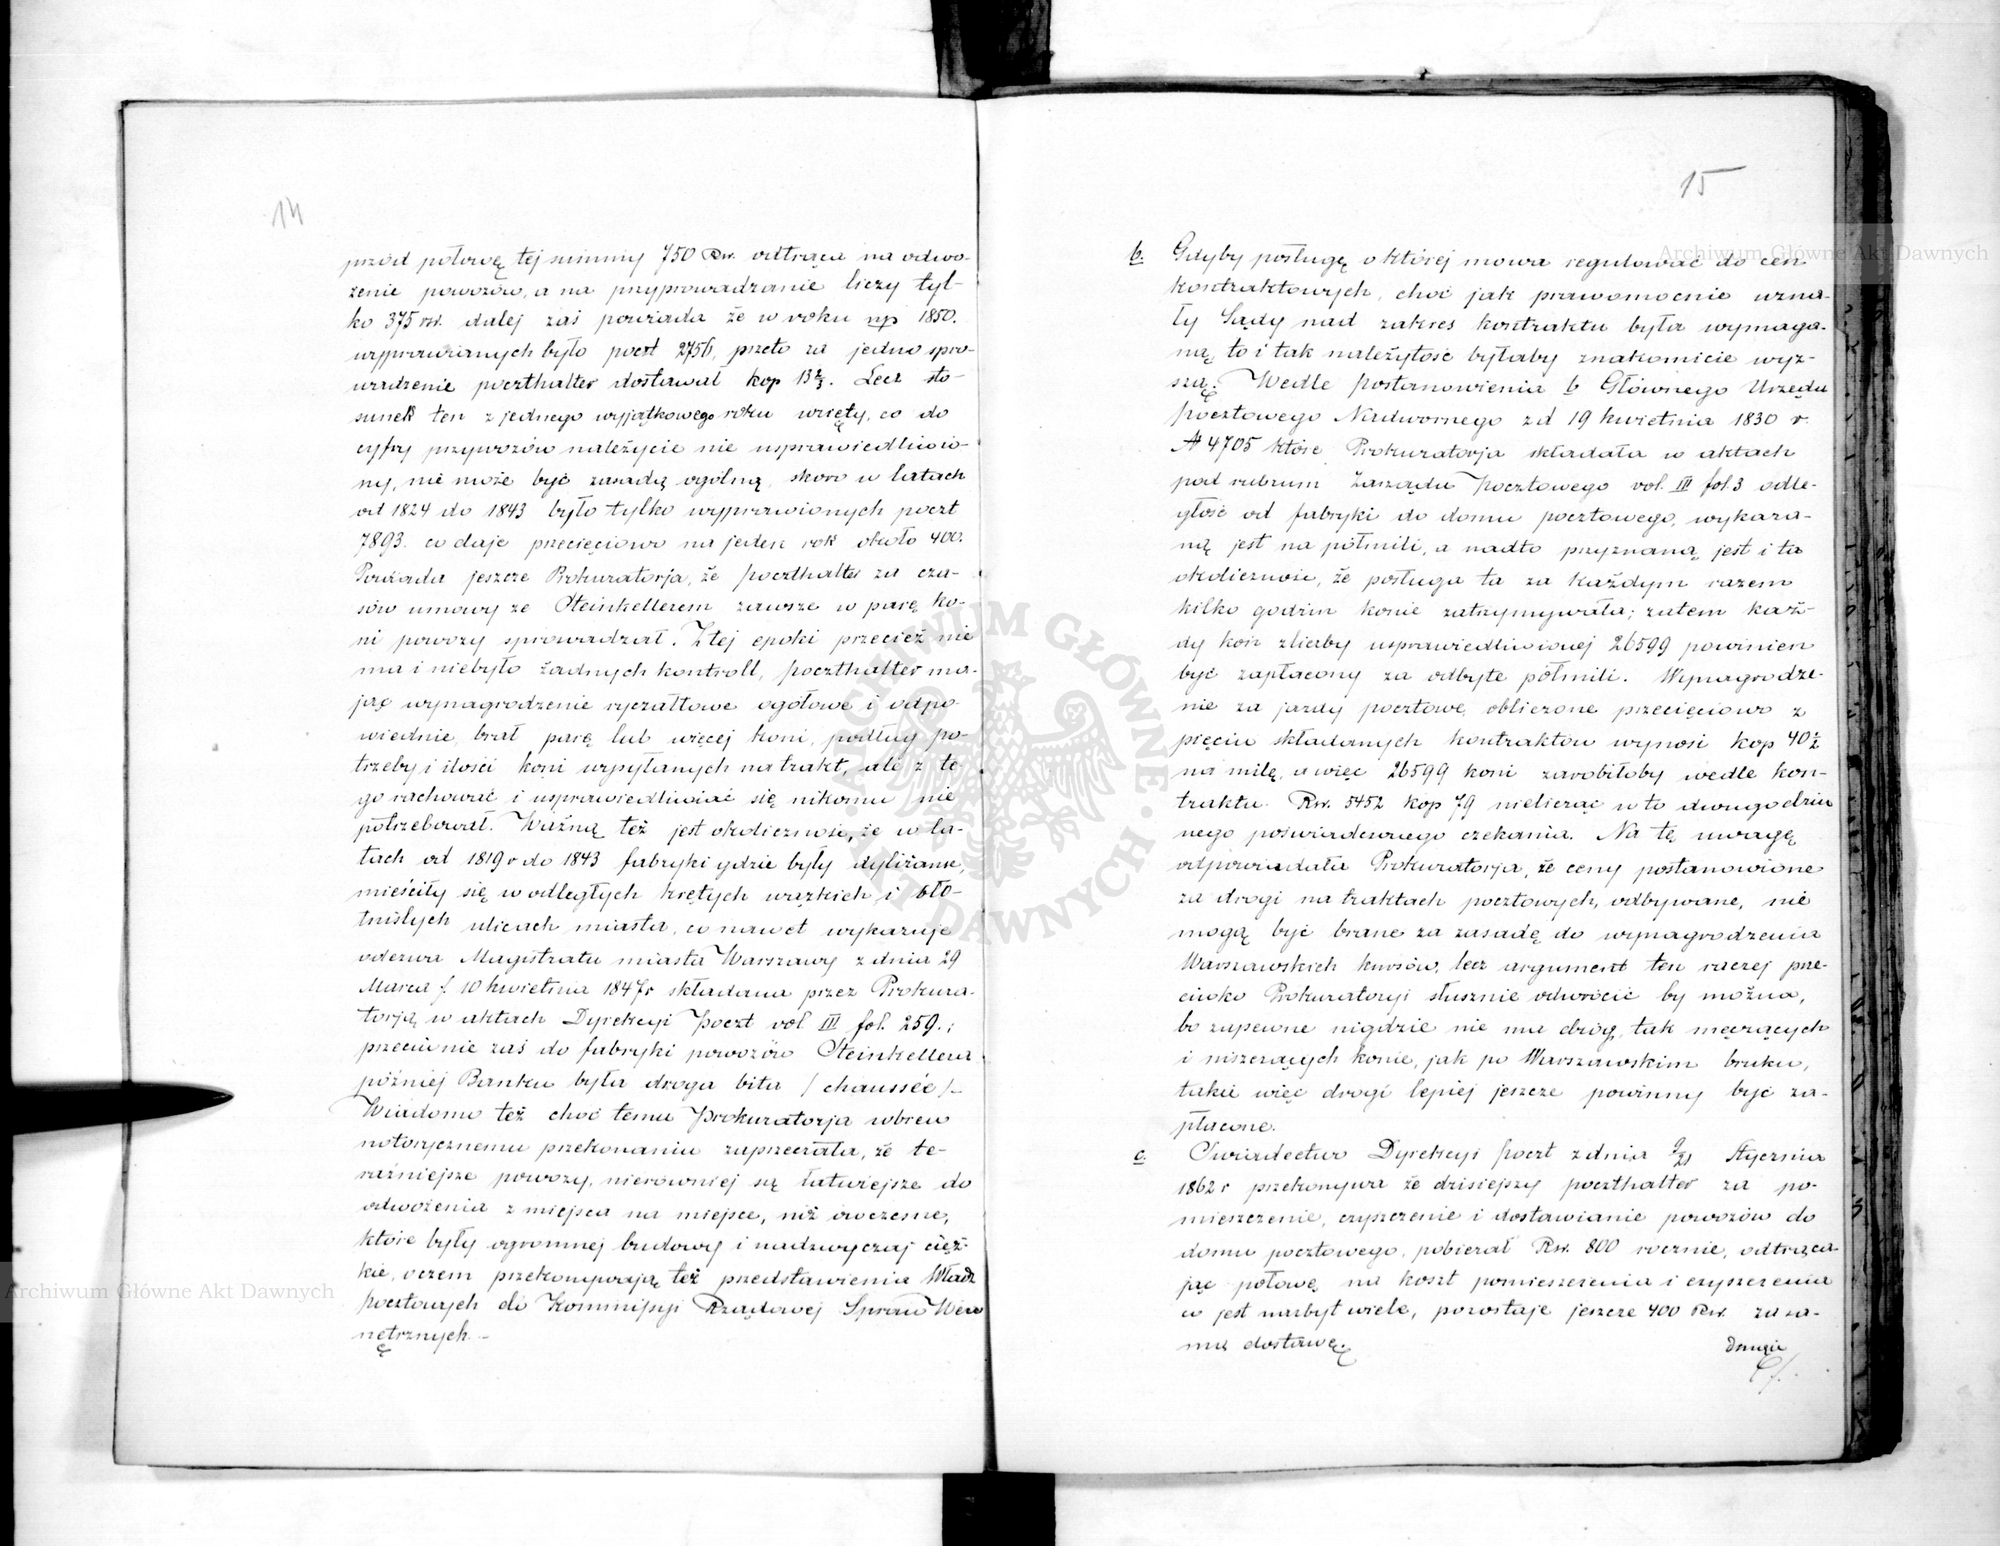 14
przód połowę tej summy 750 Rsr. odtrąca na odwo-
żenie powozów, a na przyprowadzanie liczy tyl-
ko 375 rsr. dalej zaś powiada że w roku np 1850.
wyprawianych było poczt 2756, przeto za jedno spro-
wadzenie poczthalter dostawał kop 13 2/3. Lecz sto-
sunek ten z jednego wyjątkowego roku wzięty, co do
cyfry przywozów należycie nie usprawiedliwio-
ny, nie może być zasadą ogólną, skoro w latach
od 1824 do 1843 było tylko wyprawionych poczt
7893. co daje przecięciowo na jeden rok około 400.
Powiada jeszcze Prokuratorja, że poczthalter za cza-
sów umowy ze Steinkellerem zawsze w parę ko-
ni powozy sprowadzał. Z tej epoki przecież nie
ma i niebyło żadnych kontroll, poczthalter ma-
jąc wynagrodzenie ryczałtowe ogółowe i odpo-
wiednie, brał parę lub więcej koni, podług po-
trzeby i ilości koni wysyłanych na trakt, ale z te-
go rachować i usprawiedliwiać się nikomu nie
potrzebował. Ważną też jest okoliczność, że w la-
tach od 1819 r do 1843 fabryki gdzie były dyliżanse,
mieściły się w odległych krętych wązkich i bło-
tnistych ulicach miasta, co nawet wykazuje
odezwa Magistratu miasta Warszawy z dnia 29
Marca f. 10 kwietnia 1847 r składana przez Prokura-
torją w aktach Dyrekcyi Poczt vol III fol. 259.;
przeciwnie zaś do fabryki powozów Steinkellera
później Banku była droga bita / chaussée /-
Wiadomo też choć temu Prokuratorja wbrew
notorycznemu przekonaniu zaprzeczała, że te-
raźniejsze powozy, nierówniej są łatwiejsze do
odwożenia z miejsca na miejsce, niż ówczesne,
które były ogromnej budowy i nadzwyczaj cięż-
kie, oczem przekonywają też przedstawienia Władz
Pocztowych do Kommissyi Rządowej Spraw Wew-
nętrznych.-
15
b. Gdyby posługę o której mowa regulować do cen
kontraktowych, choć jak prawomocnie uzna-
ły Sądy nad zakres kontraktu była wymaga-
ną, to i tak należytość byłaby znakomicie wyż-
szą. Wedle postanowienia b Głównego Urzędu
Pocztowego Nadwornego z d 19 kwietnia 1830 r.
№ 4705 które Prokuratorja składała w aktach
pod rubrum Zarządu Pocztowego vol. III fol. 3 odle-
głość od fabryki do domu pocztowego, wykaza-
ną jest na półmili, a nadto przyznaną jest i ta
okoliczność, że posługa ta za każdym razem
kilko godzin konie zatrzymywała; zatem każ-
dy koń z liczby usprawiedliwionej 26599 powinien
być zapłacony za odbyte półmili. Wynagrodze-
nie za jazdy pocztowe, obliczone przecięciowo z
pięciu składanych kontraktów wynosi kop 40 1/2
na milę, a więc 26599 koni zarobiłoby wedle kon-
traktu Rsr. 5452 kop 79 nielicząc w to dwugodzin
nego poświadczonego czekania. Na tę uwagę
odpowiadała Prokuratorja, że ceny postanowione
za drogi na traktach pocztowych, odbywane, nie
mogą być brane za zasadę do wynagrodzenia
Warszawskich kursów, lecz argument ten raczej prze-
ciwko Prokuratoryi słusznie odwrócić by można,
bo zapewne nigdzie nie ma dróg, tak męczących
i niszczących konie, jak po Warszawskim bruku,
takie więc drogi lepiej jeszcze powinny być za-
płacone.
c. Świadectwo Dyrekcyi Poczt z dnia 9/21 Stycznia
1862 r przekonywa że dzisiejszy poczthalter za po-
mieszczenie, czyszczenie i dostawianie powozów do
domu pocztowego, pobierał Rsr. 800 rocznie, odtrąca-
jąc połowę na koszt pomieszczenia i czyszczenia
co jest nazbyt wiele, pozostaje jeszcze 400 Rsr. za sa-
mą dostawę.